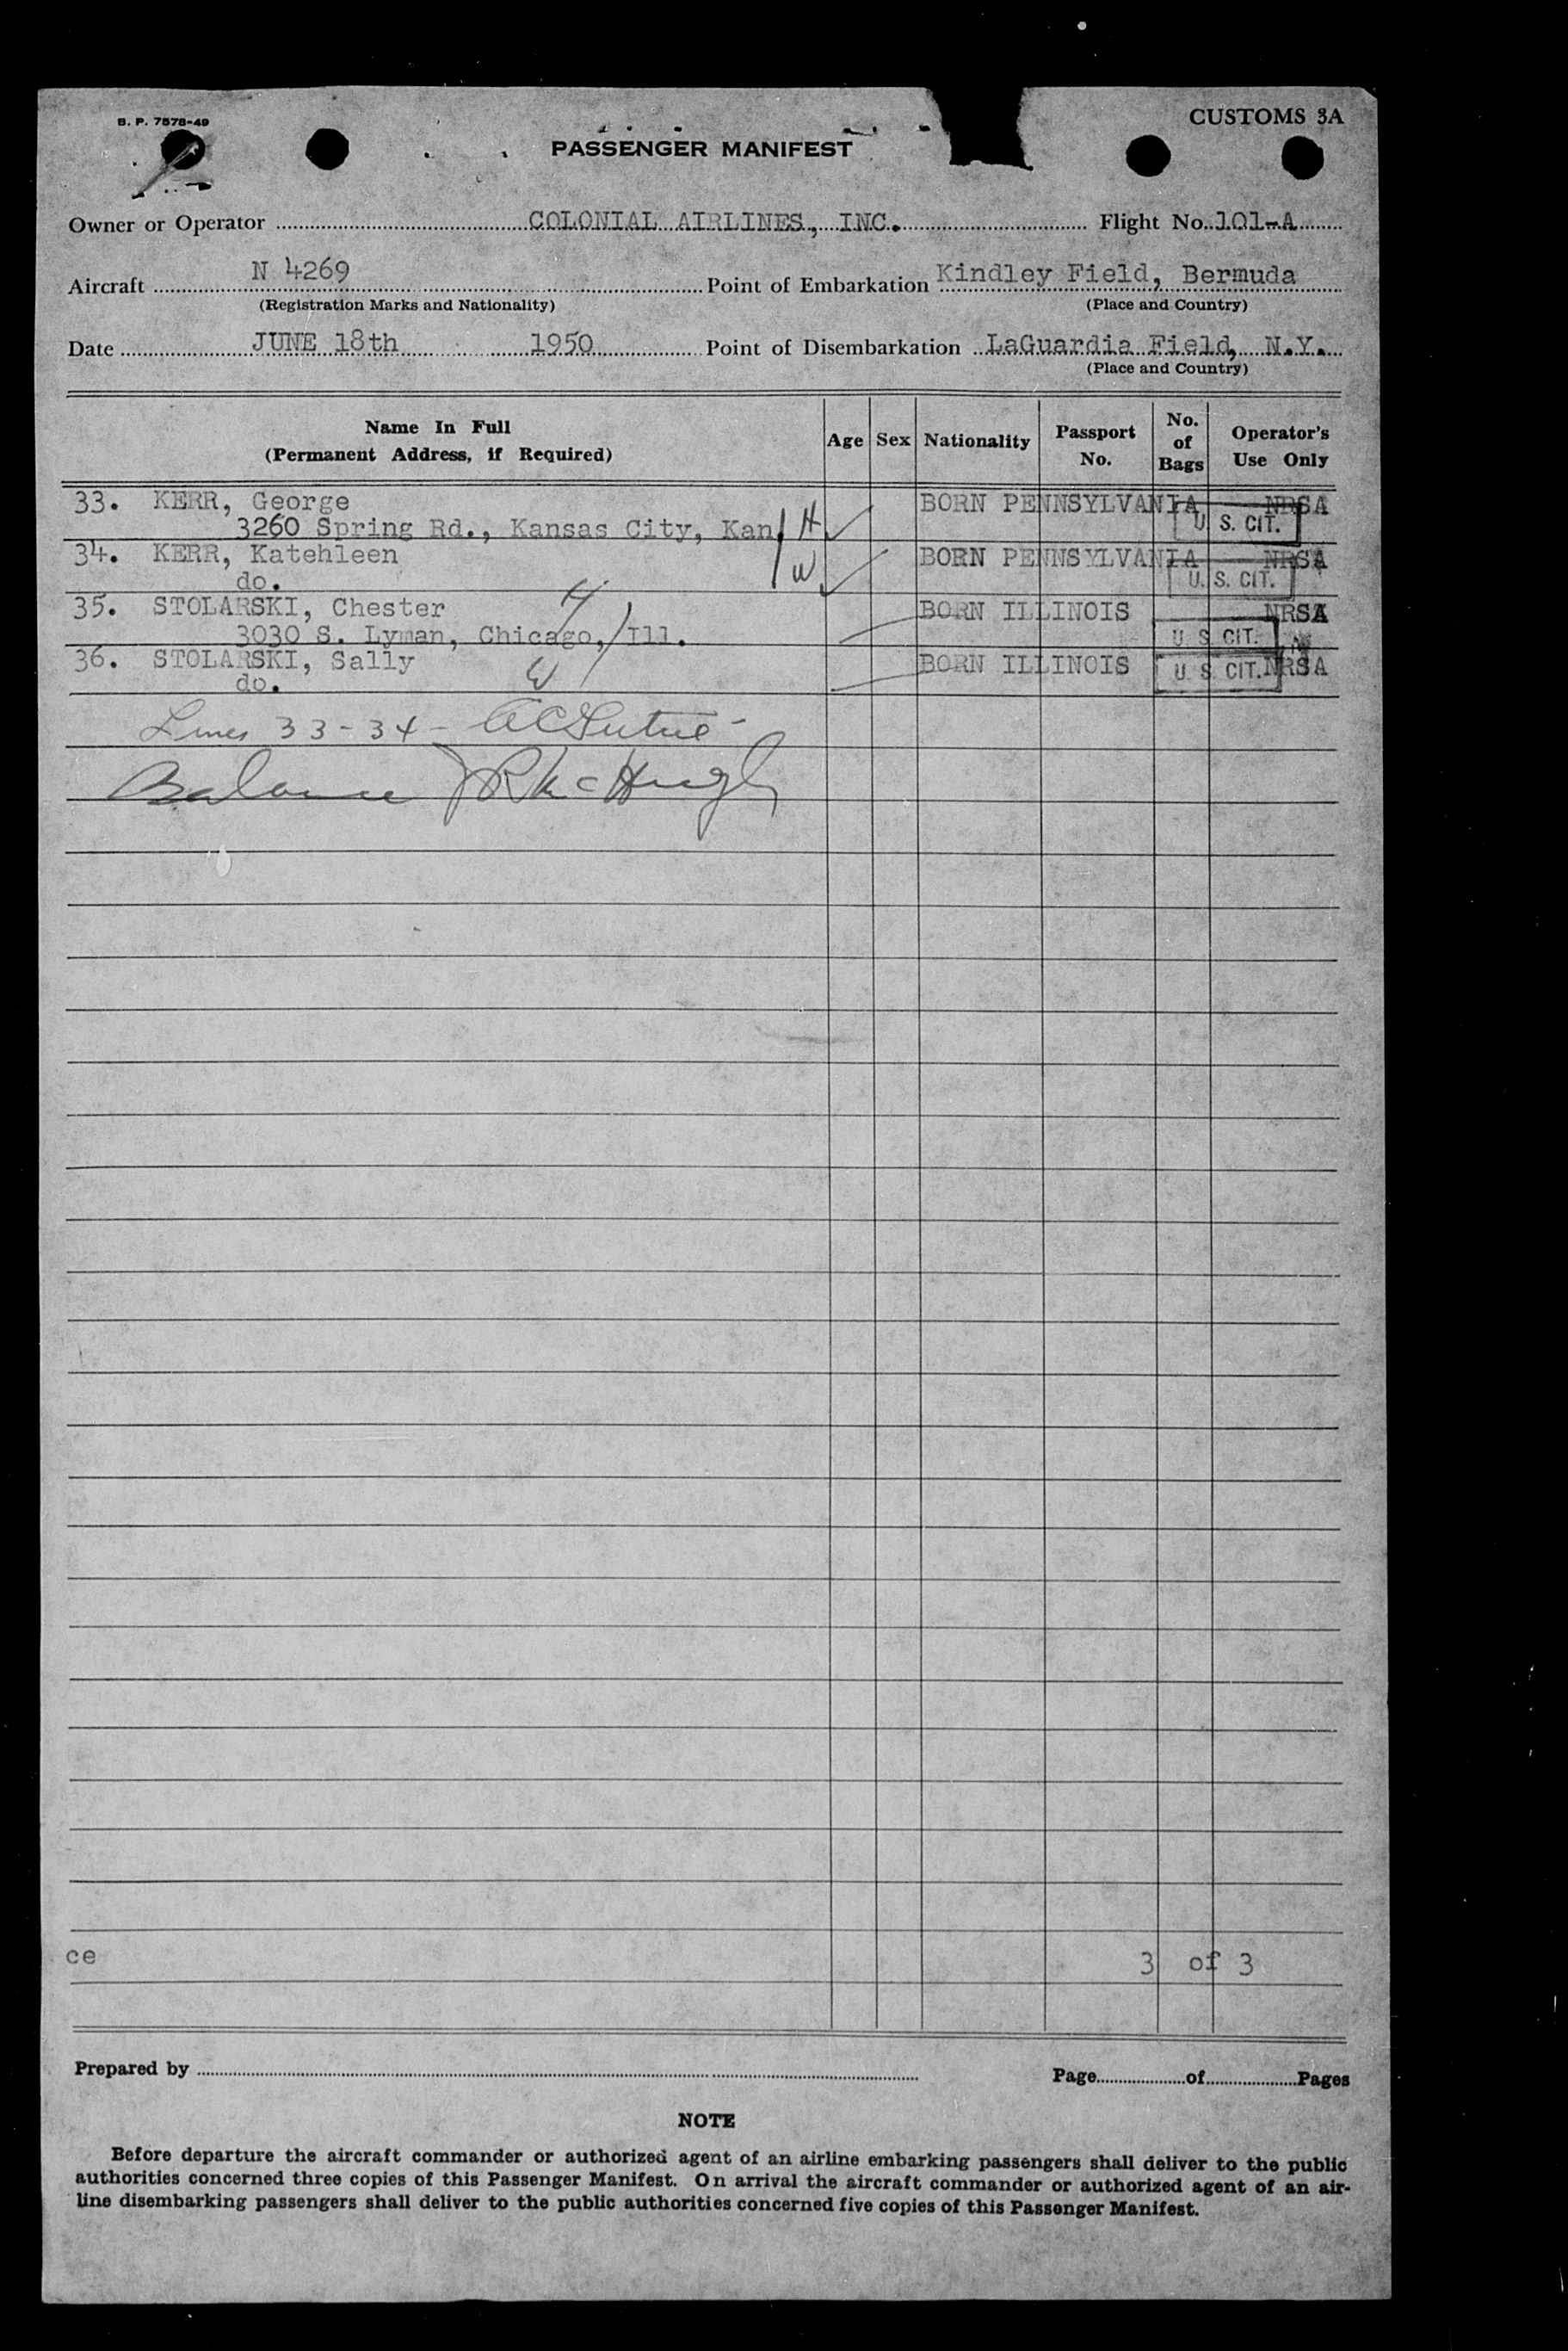 B. P. 7578-49
CUSTOMS 3A
PASSENGER MANIFEST
Owner or Operator COLONIAL AIRLINES, INC. Flight No. 101-A
Aircraft N 4269 Point of Embarkation Kindley Field, Bermuda
(Registration Marks and Nationality) (Place and Country)
Date JUNE 18th 1950 Point of Disembarkation LaGuardia Field, N.Y.
(Place and Country)
Name In Full
(Permanent Address, if Required)
Age
Sex
Nationality
Passport
No.
No.
of
Bags
Operator's
Use Only
33. KERR, George BORN PENNSYLVANIA NRSA
3260 Spring Rd., Kansas City, Kan H U. S. CIT.
34. KERR, Katehleen BORN PENNSYLVANIA NRSA
do. W U. S. CIT.
35. STOLARSKI, Chester H BORN ILLINOIS NRSA
3030 S. Lyman, Chicago, Ill. U. S. CIT.
36. STOLARSKI, Sally W BORN ILLINOIS NRSA
do. U. S. CIT.
Lines 33-34-
Balance J R McHugh
ce 3 of 3
Prepared by Page of Pages
NOTE
Before departure the aircraft commander or authorized agent of an airline embarking passengers shall deliver to the public
authorities concerned three copies of this Passenger Manifest. On arrival the aircraft commander or authorized agent of an air-
line disembarking passengers shall deliver to the public authorities concerned five copies of this Passenger Manifest.